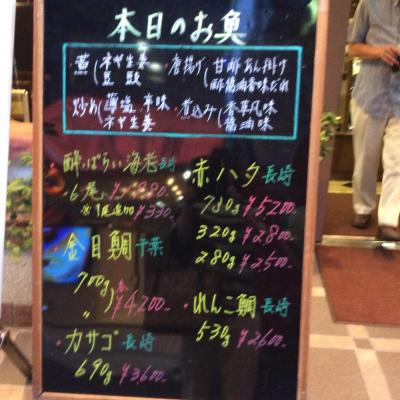 本日のお魚
蒸 ネギ生姜 豆豉
・唐揚げ 甘酢あん掛け 酢醤油香味だれ
炒め 薬塩辛味 ネギ生姜
・煮込み 香草風味 醤油味
・酔っぱらい海老 長崎
6尾
※1尾追加¥330-
・金目鯛 千葉
700g
〃
¥4,200-
・カサゴ 長崎
690g ¥3,600-
・赤ハタ 長崎
780g ¥5200-
320g ¥2,800-
280g ¥2,500-
・れんこ鯛 長崎
530g ¥2,600-